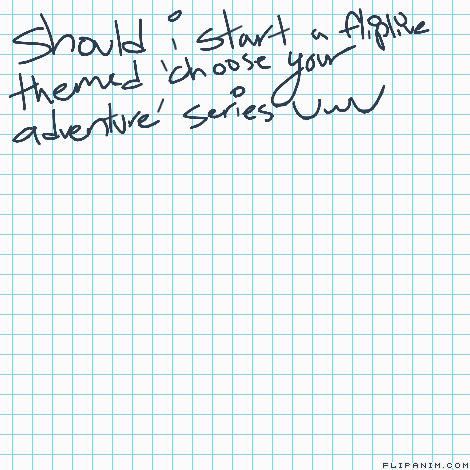 Should i start a fliplike
themed 'choose your
adventure' series UwU
FLIPANIM.COM